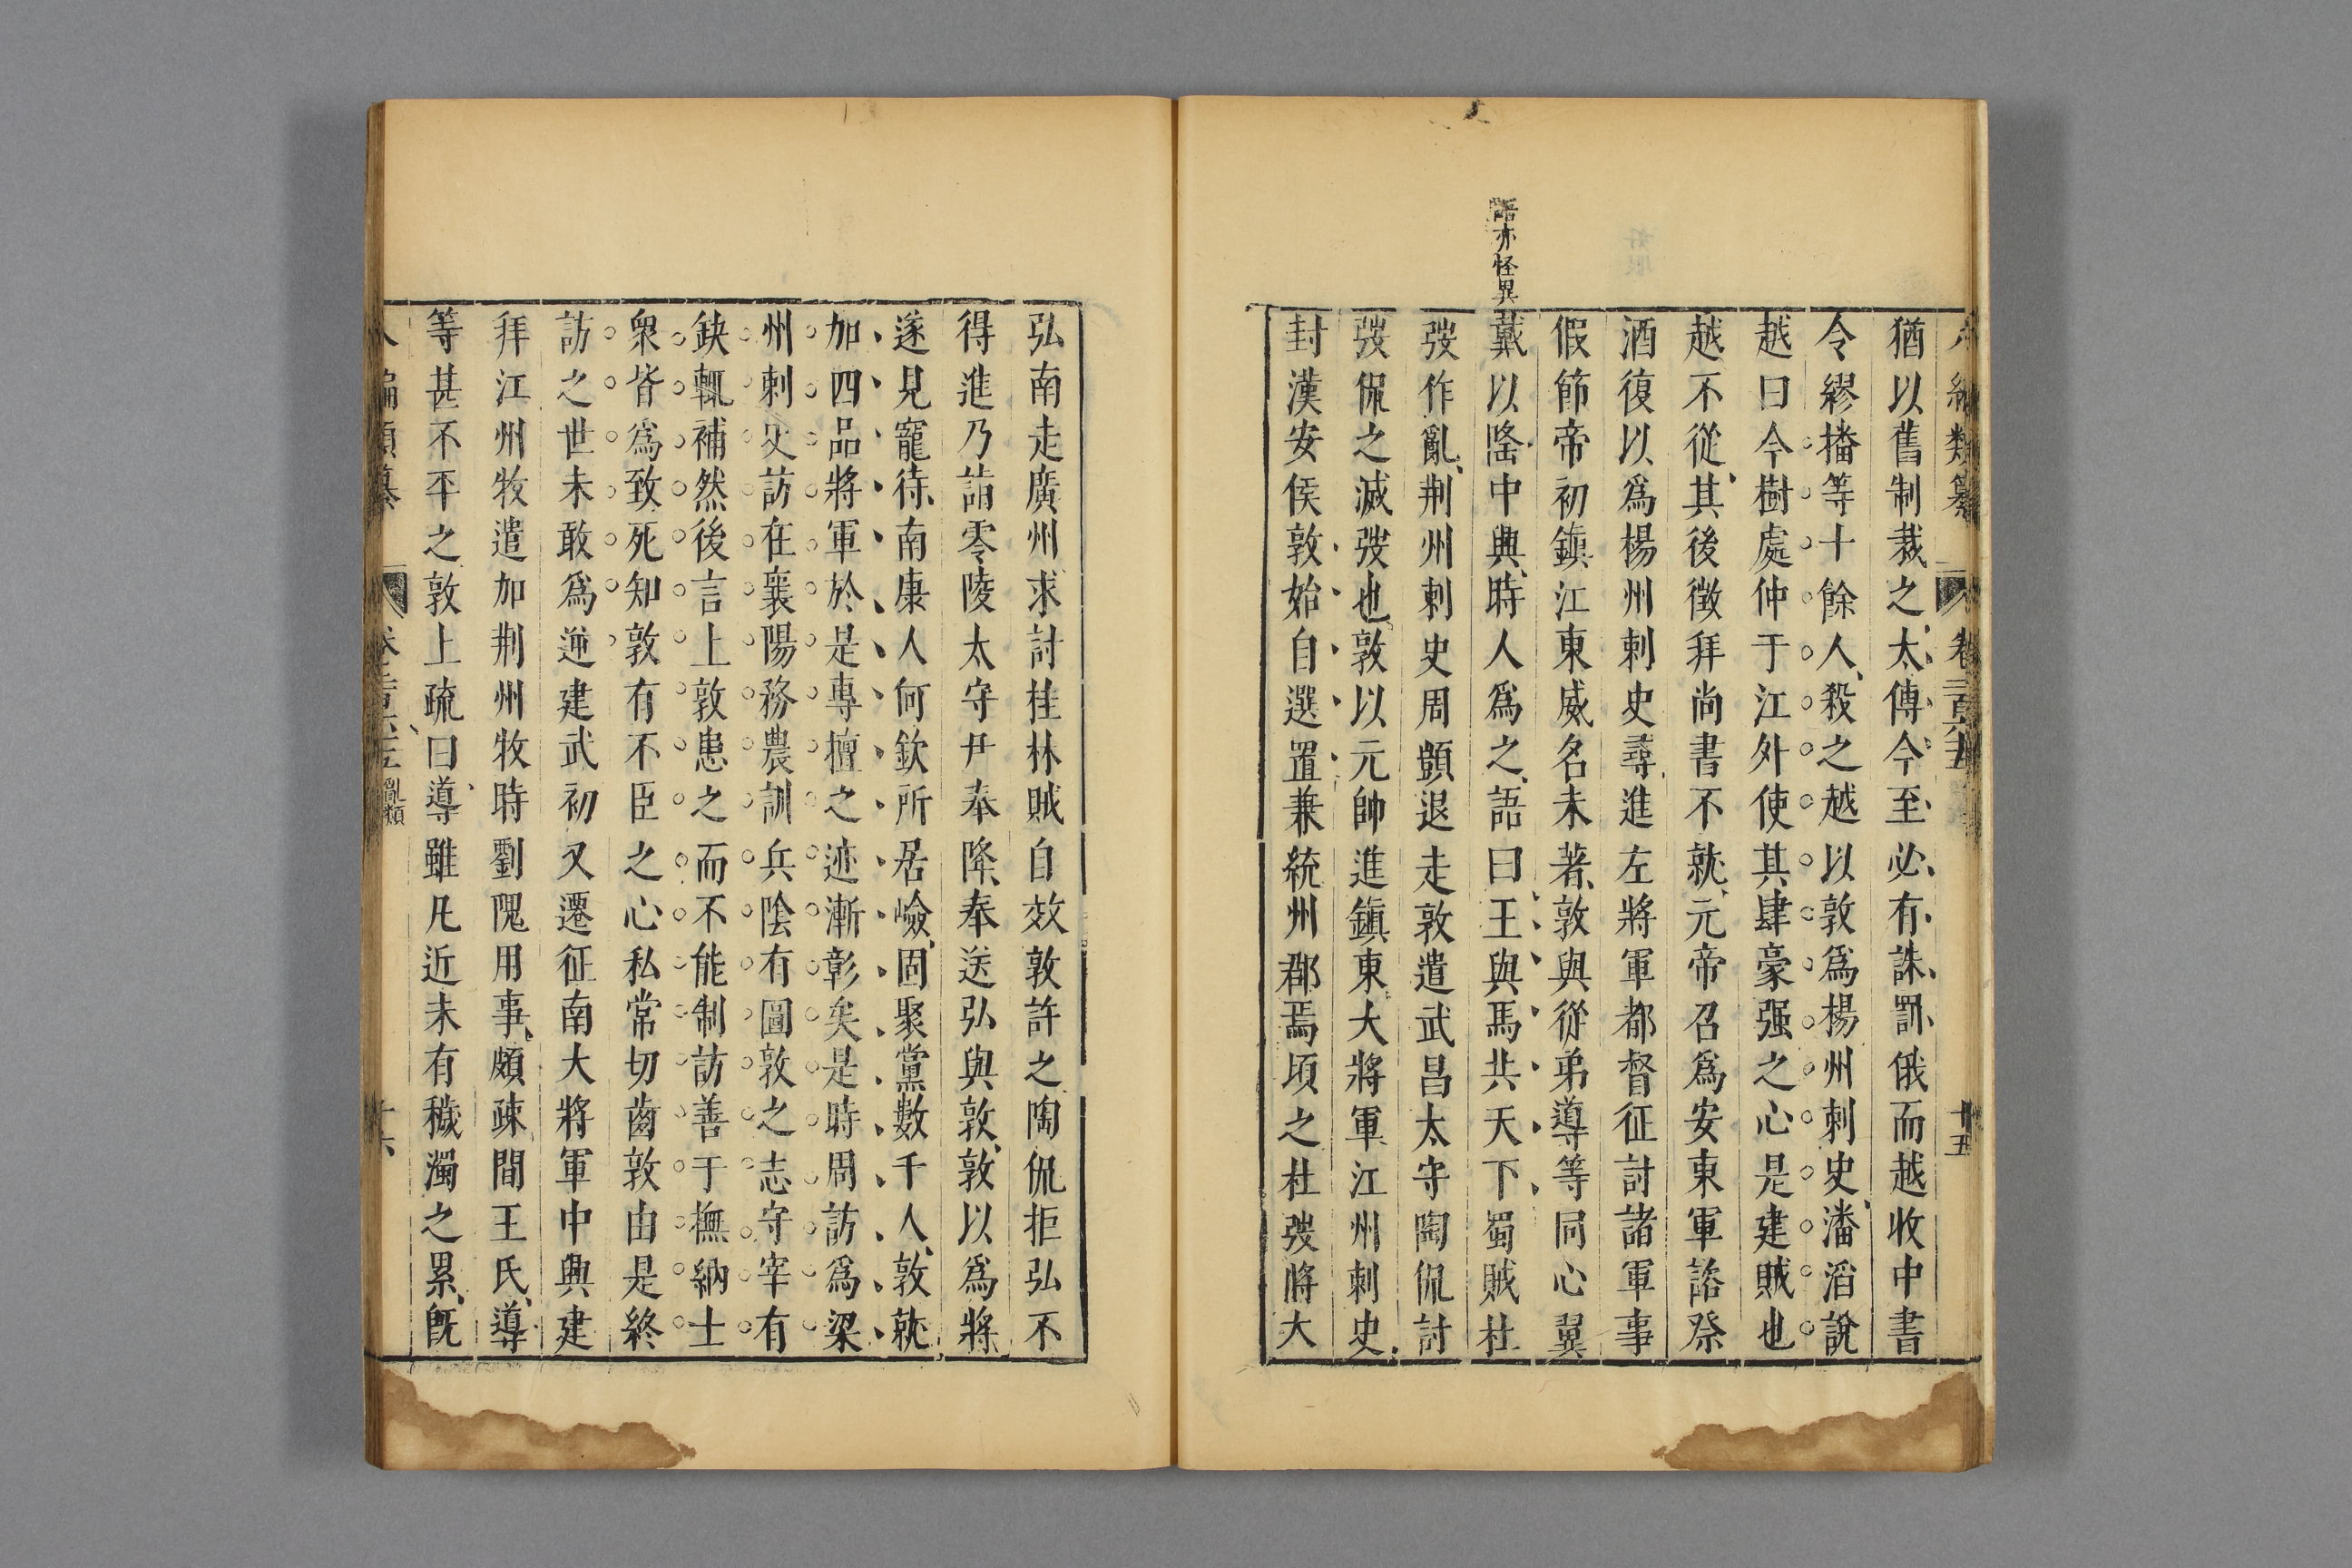 編類纂 卷二百六十五 廿五
猶以舊制裁之太傅今至必有誅罰俄而越收中書
令繆播等十餘人殺之越以敦爲楊州刺史潘滔說
越曰今樹處仲于江外使其肆豪强之心是建賊也
越不從其後徵拜尚書不就元帝召爲安東軍諮祭
酒復以爲楊州刺史尋進左將軍都督征討諸軍事
假節帝初鎭江東威名未著敦與從弟導等同心翼
語亦怪異
戴以隆中興時人爲之語曰王與馬共天下蜀賊杜
弢作亂荆州刺史周顗退走敦遣武昌太守陶侃討
弢侃之滅弢也敦以元帥進鎭東大將軍江州刺史
封漢安侯敦始自選置兼統州郡焉頃之杜弢將大
弘南走廣州求討桂林賊自效敦許之陶侃拒弘不
得進乃詣零陵太守尹奉降奉送弘與敦敦以爲將
遂見寵待南康人何欽所居嶮固聚黨數千人敦就
加四品將軍於是專擅之迹漸彰矣是時周訪爲梁
州刺史訪在襄陽務農訓兵陰有圖敦之志守宰有
缺輒補然後言上敦患之而不能制訪善于撫納士
衆皆爲致死知敦有不臣之心私常切齒敦由是終
訪之世未敢爲逆建武初又遷征南大將軍中興建
拜江州牧遣加荆州牧時劉隗用事頗疎間王氏導
等甚不平之敦上疏曰導雖凡近未有穢濁之累旣
編類纂 亂類